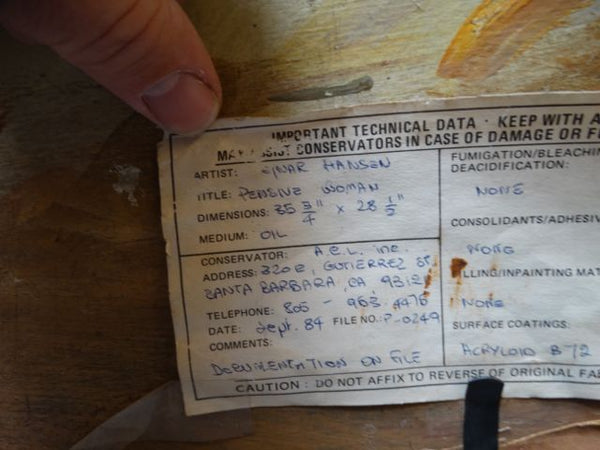 IMPORTANT TECHNICAL DATA · KEEP WITH A
MAY ASSIST CONSERVATORS IN CASE OF DAMAGE OR F
ARTIST: EINAR HANSEN
TITLE: PENSIVE WOMAN
DIMENSIONS: 35 3/4" x 28 1/2"
MEDIUM: OIL
CONSERVATOR: A.C.L. inc.
ADDRESS: 320 E. GUTIERREZ ST.
SANTA BARBARA, CA, 9312
TELEPHONE: 805 - 963 4476
DATE: Sept. 84 FILE NO.: P-0249
COMMENTS:
DOCUMENTATION ON FILE
FUMIGATION/BLEACHIN
DEACIDIFICATION:
NONE
CONSOLIDANTS/ADHESIV
NONE
ILLING/INPAINTING MAT
NONE
SURFACE COATINGS:
ACRYLOID B72
CAUTION: DO NOT AFFIX TO REVERSE OF ORIGINAL FAB